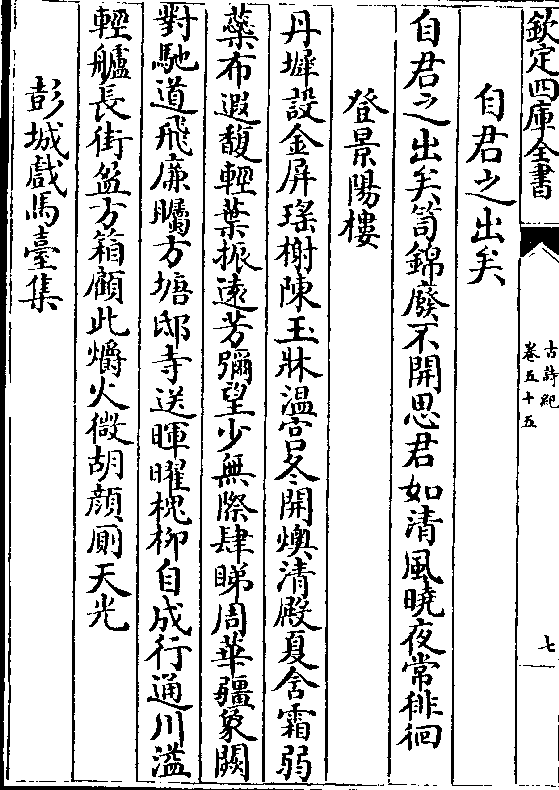 欽定四庫全書
古詩紀
卷五十五
七
自君之出矣
自君之出矣笥錦廢不開思君如清風曉夜常徘徊
登景陽樓
丹墀設金屏瑤榭陳玉牀溫宮冬開燠清殿夏含霜弱
蘂布遐馥輕葉振遠芳彌望少無際肆睇周華疆象闕
對馳道飛廉矚方塘邸寺送暉曜槐柳自成行通川溢
輕艫長街盈方箱顧此爝火微胡顏厠天光
彭城戲馬臺集